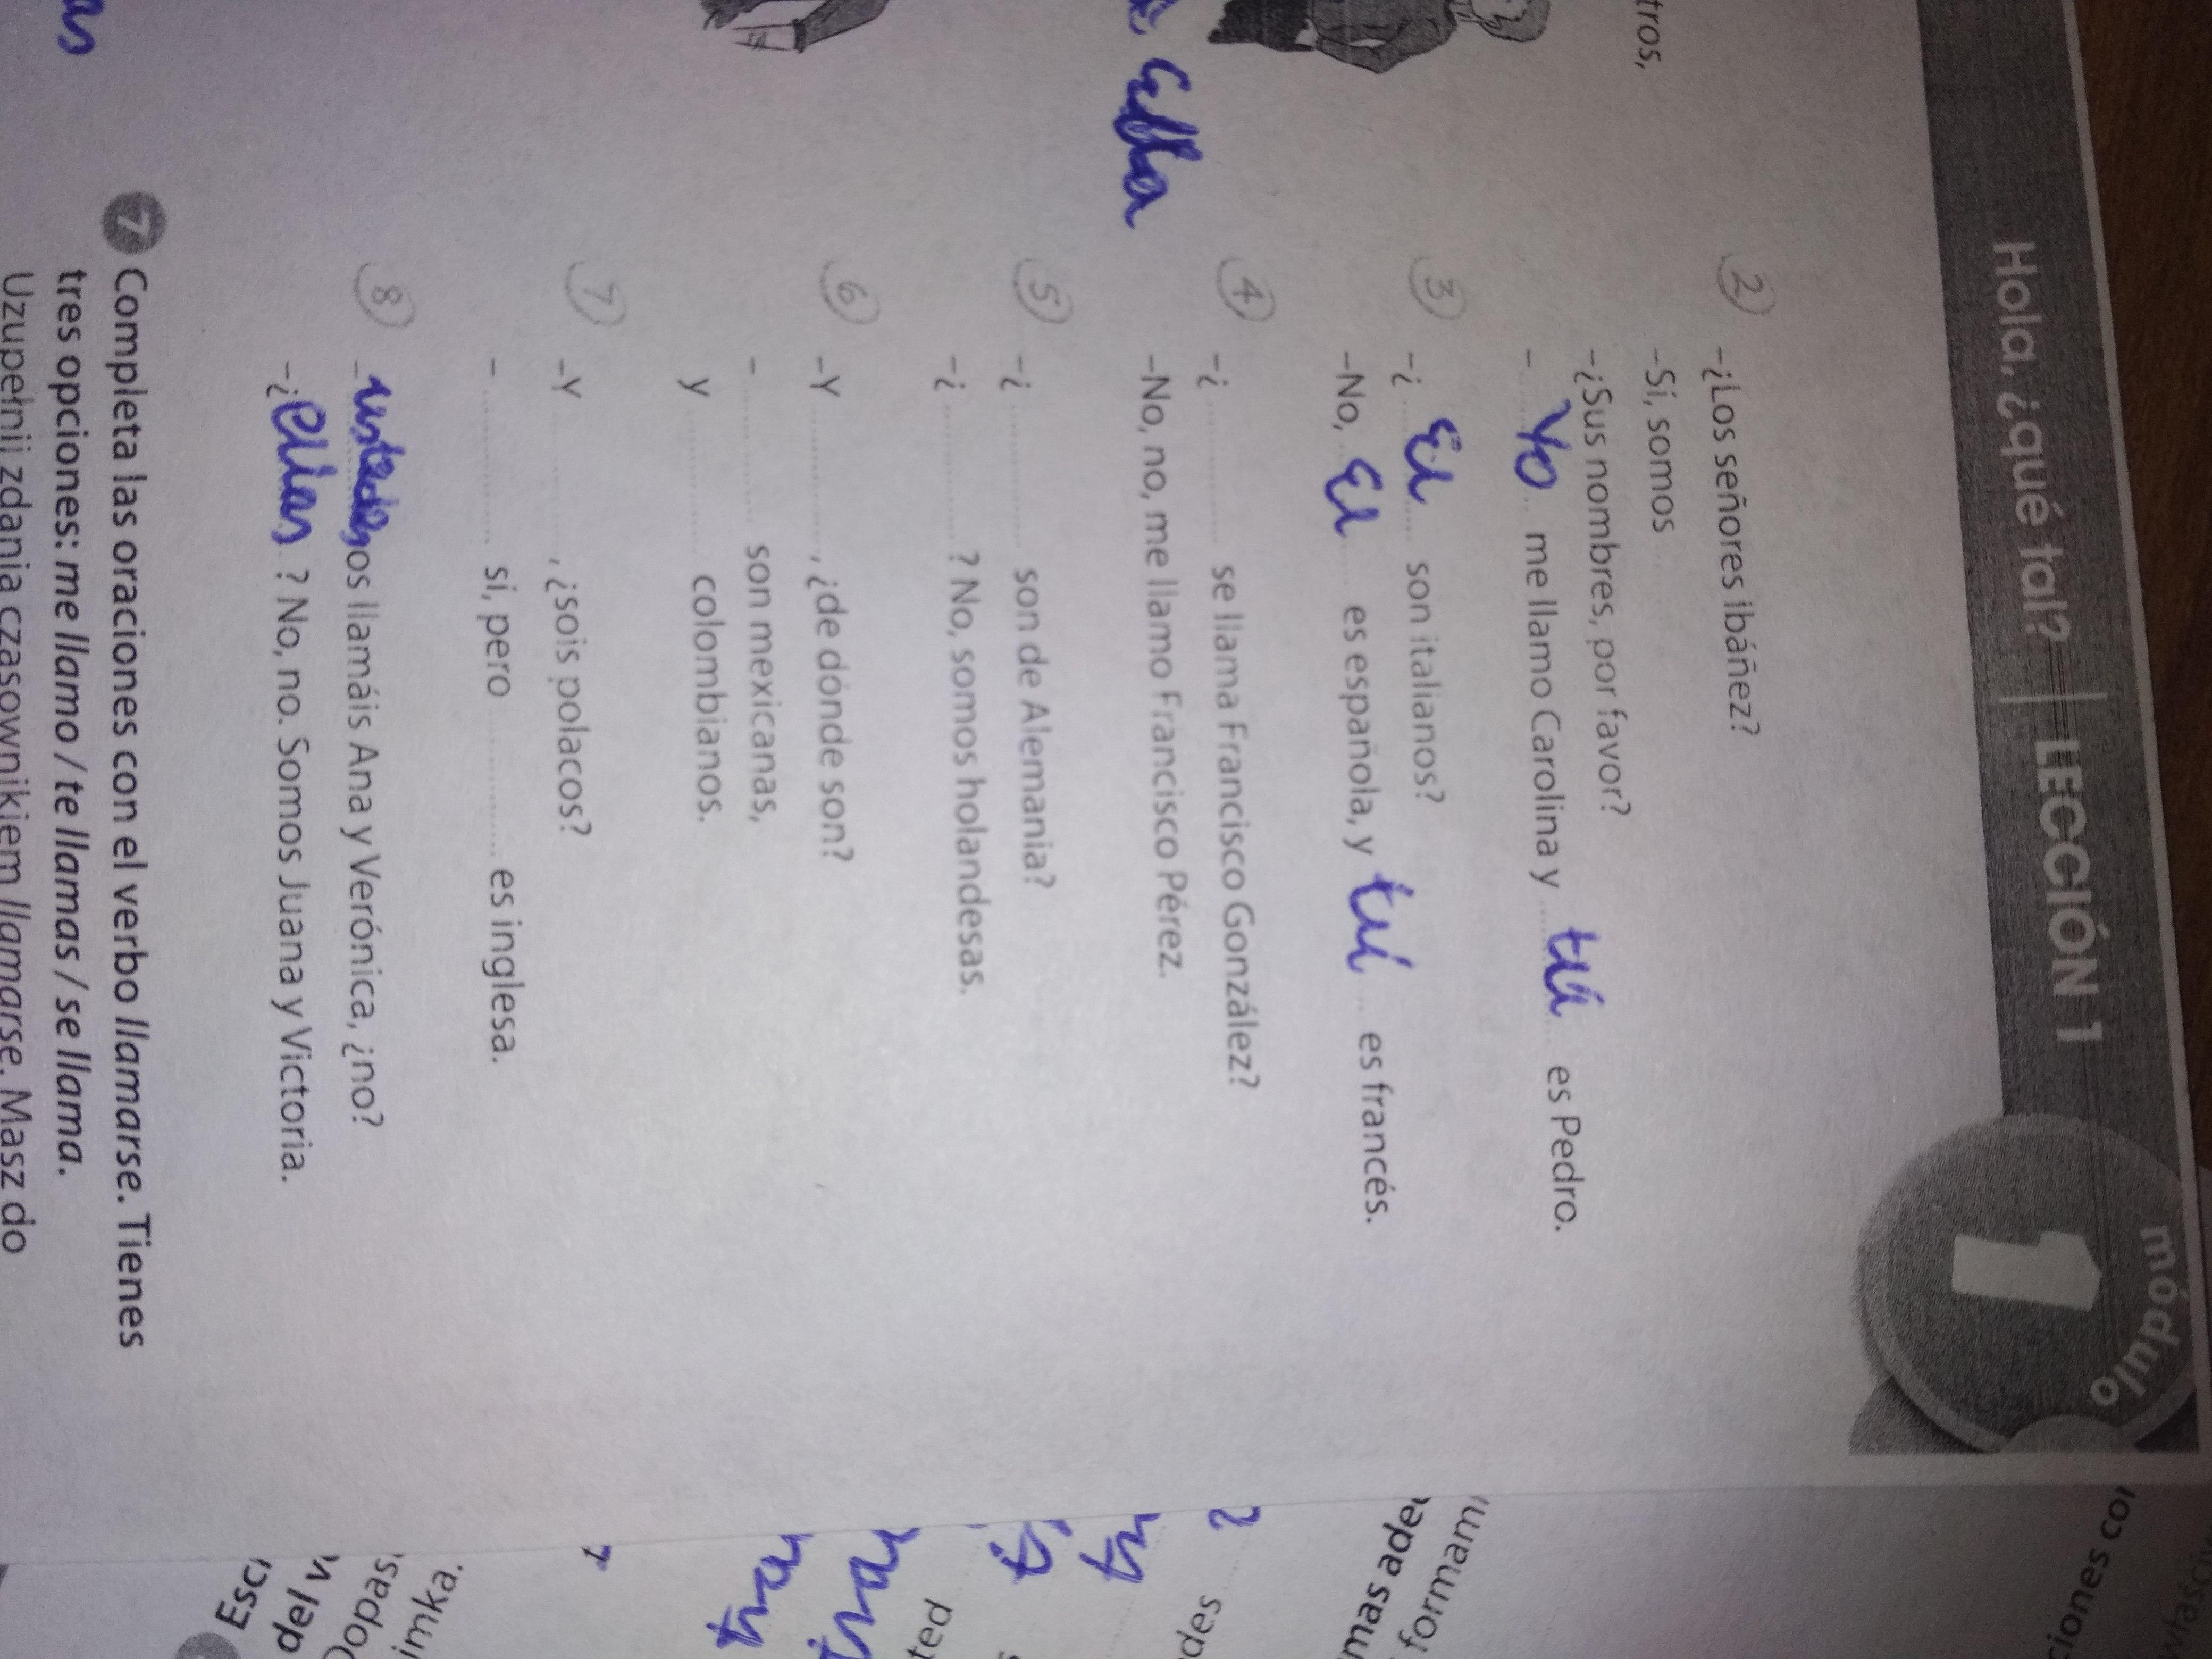 tros,
Hola, ¿qué tal? | LECCIÓN 1
módulo
1
2 –¿Los señores Ibáñez?
–Sí, somos
–¿Sus nombres, por favor?
– Yo me llamo Carolina y tú es Pedro.
3 –¿ El son italianos?
–No, El es española, y tú es francés.
4 –¿ ............ se llama Francisco González?
–No, no, me llamo Francisco Pérez.
ella
5 –¿ ............ son de Alemania?
–¿ ............ ? No, somos holandesas.
6 –Y ............ , ¿de dónde son?
– ............ son mexicanas,
y ............ colombianos.
7 –Y ............ , ¿sois polacos?
– ............ sí, pero ............ es inglesa.
8 – ustedes os llamáis Ana y Verónica, ¿no?
–¿ ellas ? No, no. Somos Juana y Victoria.
as
7 Completa las oraciones con el verbo llamarse. Tienes
tres opciones: me llamo / te llamas / se llama.
Uzupełnij zdania czasownikiem llamarse. Masz do
ciones
mas
formami
des
ted
Escr
del v
imka.